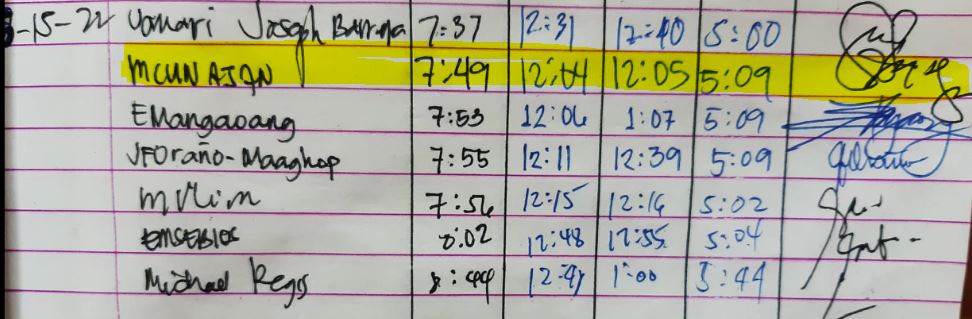 -15-22 Jomari Joseph Barroga 7:37 12:31 12:40 5:00
MCUNAJAN 7:49 12:04 12:05 5:09
EMangaoang 7:53 12:06 1:07 5:09
JFOraño-Maaghop 7:55 12:11 12:39 5:09
MVLim 7:56 12:15 12:16 5:02
EMSEBIOS 8:02 12:48 12:55 5:04
Michael Regis 8:44 1:00 5:44